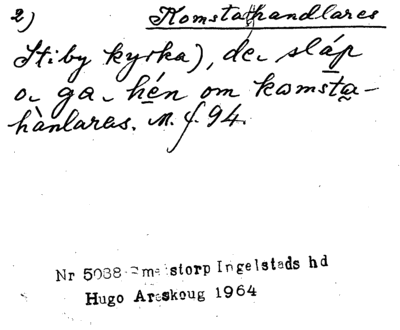 2) Komstathandlares
Stiby kyrka), de sláp
o ga hén om komsta-
hànlaras. M. f. 94.
Nr 5038 Smedstorp Ingelstads hd
Hugo Areskoug 1964